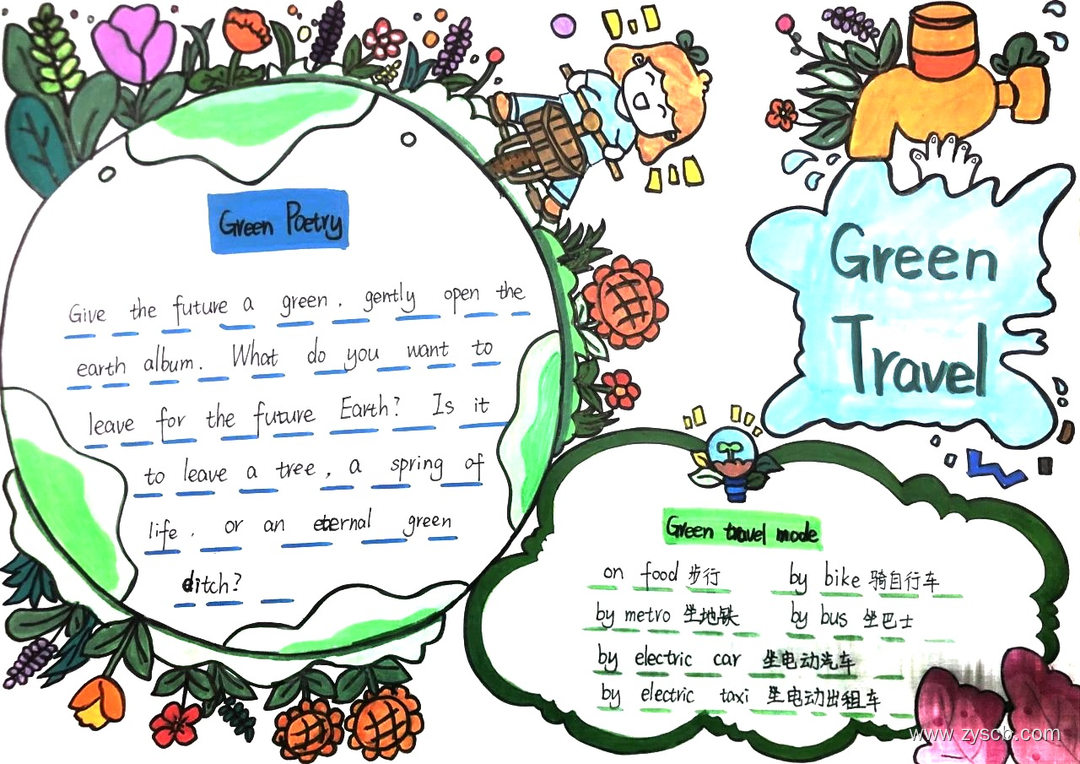 Green Poetry
Give the future a green, gently open the
earth album. What do you want to
leave for the future Earth? Is it
to leave a tree, a spring of
life, or an eternal green
ditch?
Green Travel
Green travel mode
on food 步行 by bike 骑自行车
by metro 坐地铁 by bus 坐巴士
by electric car 坐电动汽车
by electric taxi 坐电动出租车
www.zyscb.com